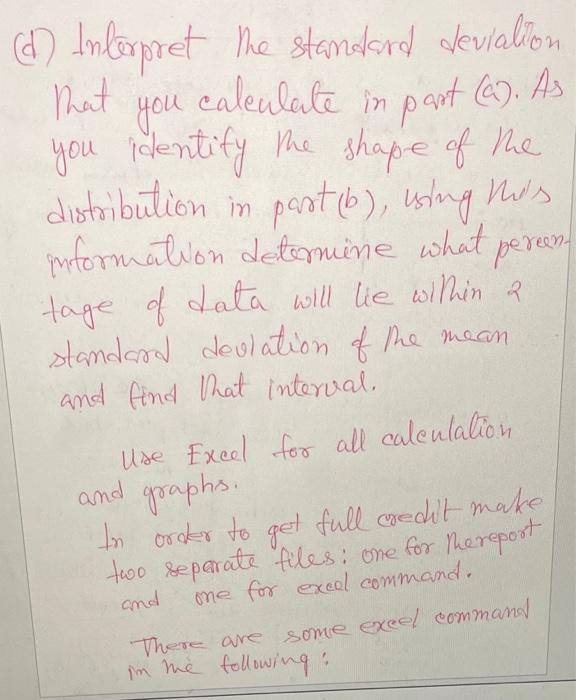 (d) Interpret the standard deviation
that you calculate in part (a). As
you identify the shape of the
distribution in part (b), using this
information determine what percen-
tage of data will lie within 2
standard deviation of the mean
and find that interval.
Use Excel for all calculation
and graphs.
In order to get full credit make
two separate files: one for the report
and one for excel command.
There are some excel command
in the following: